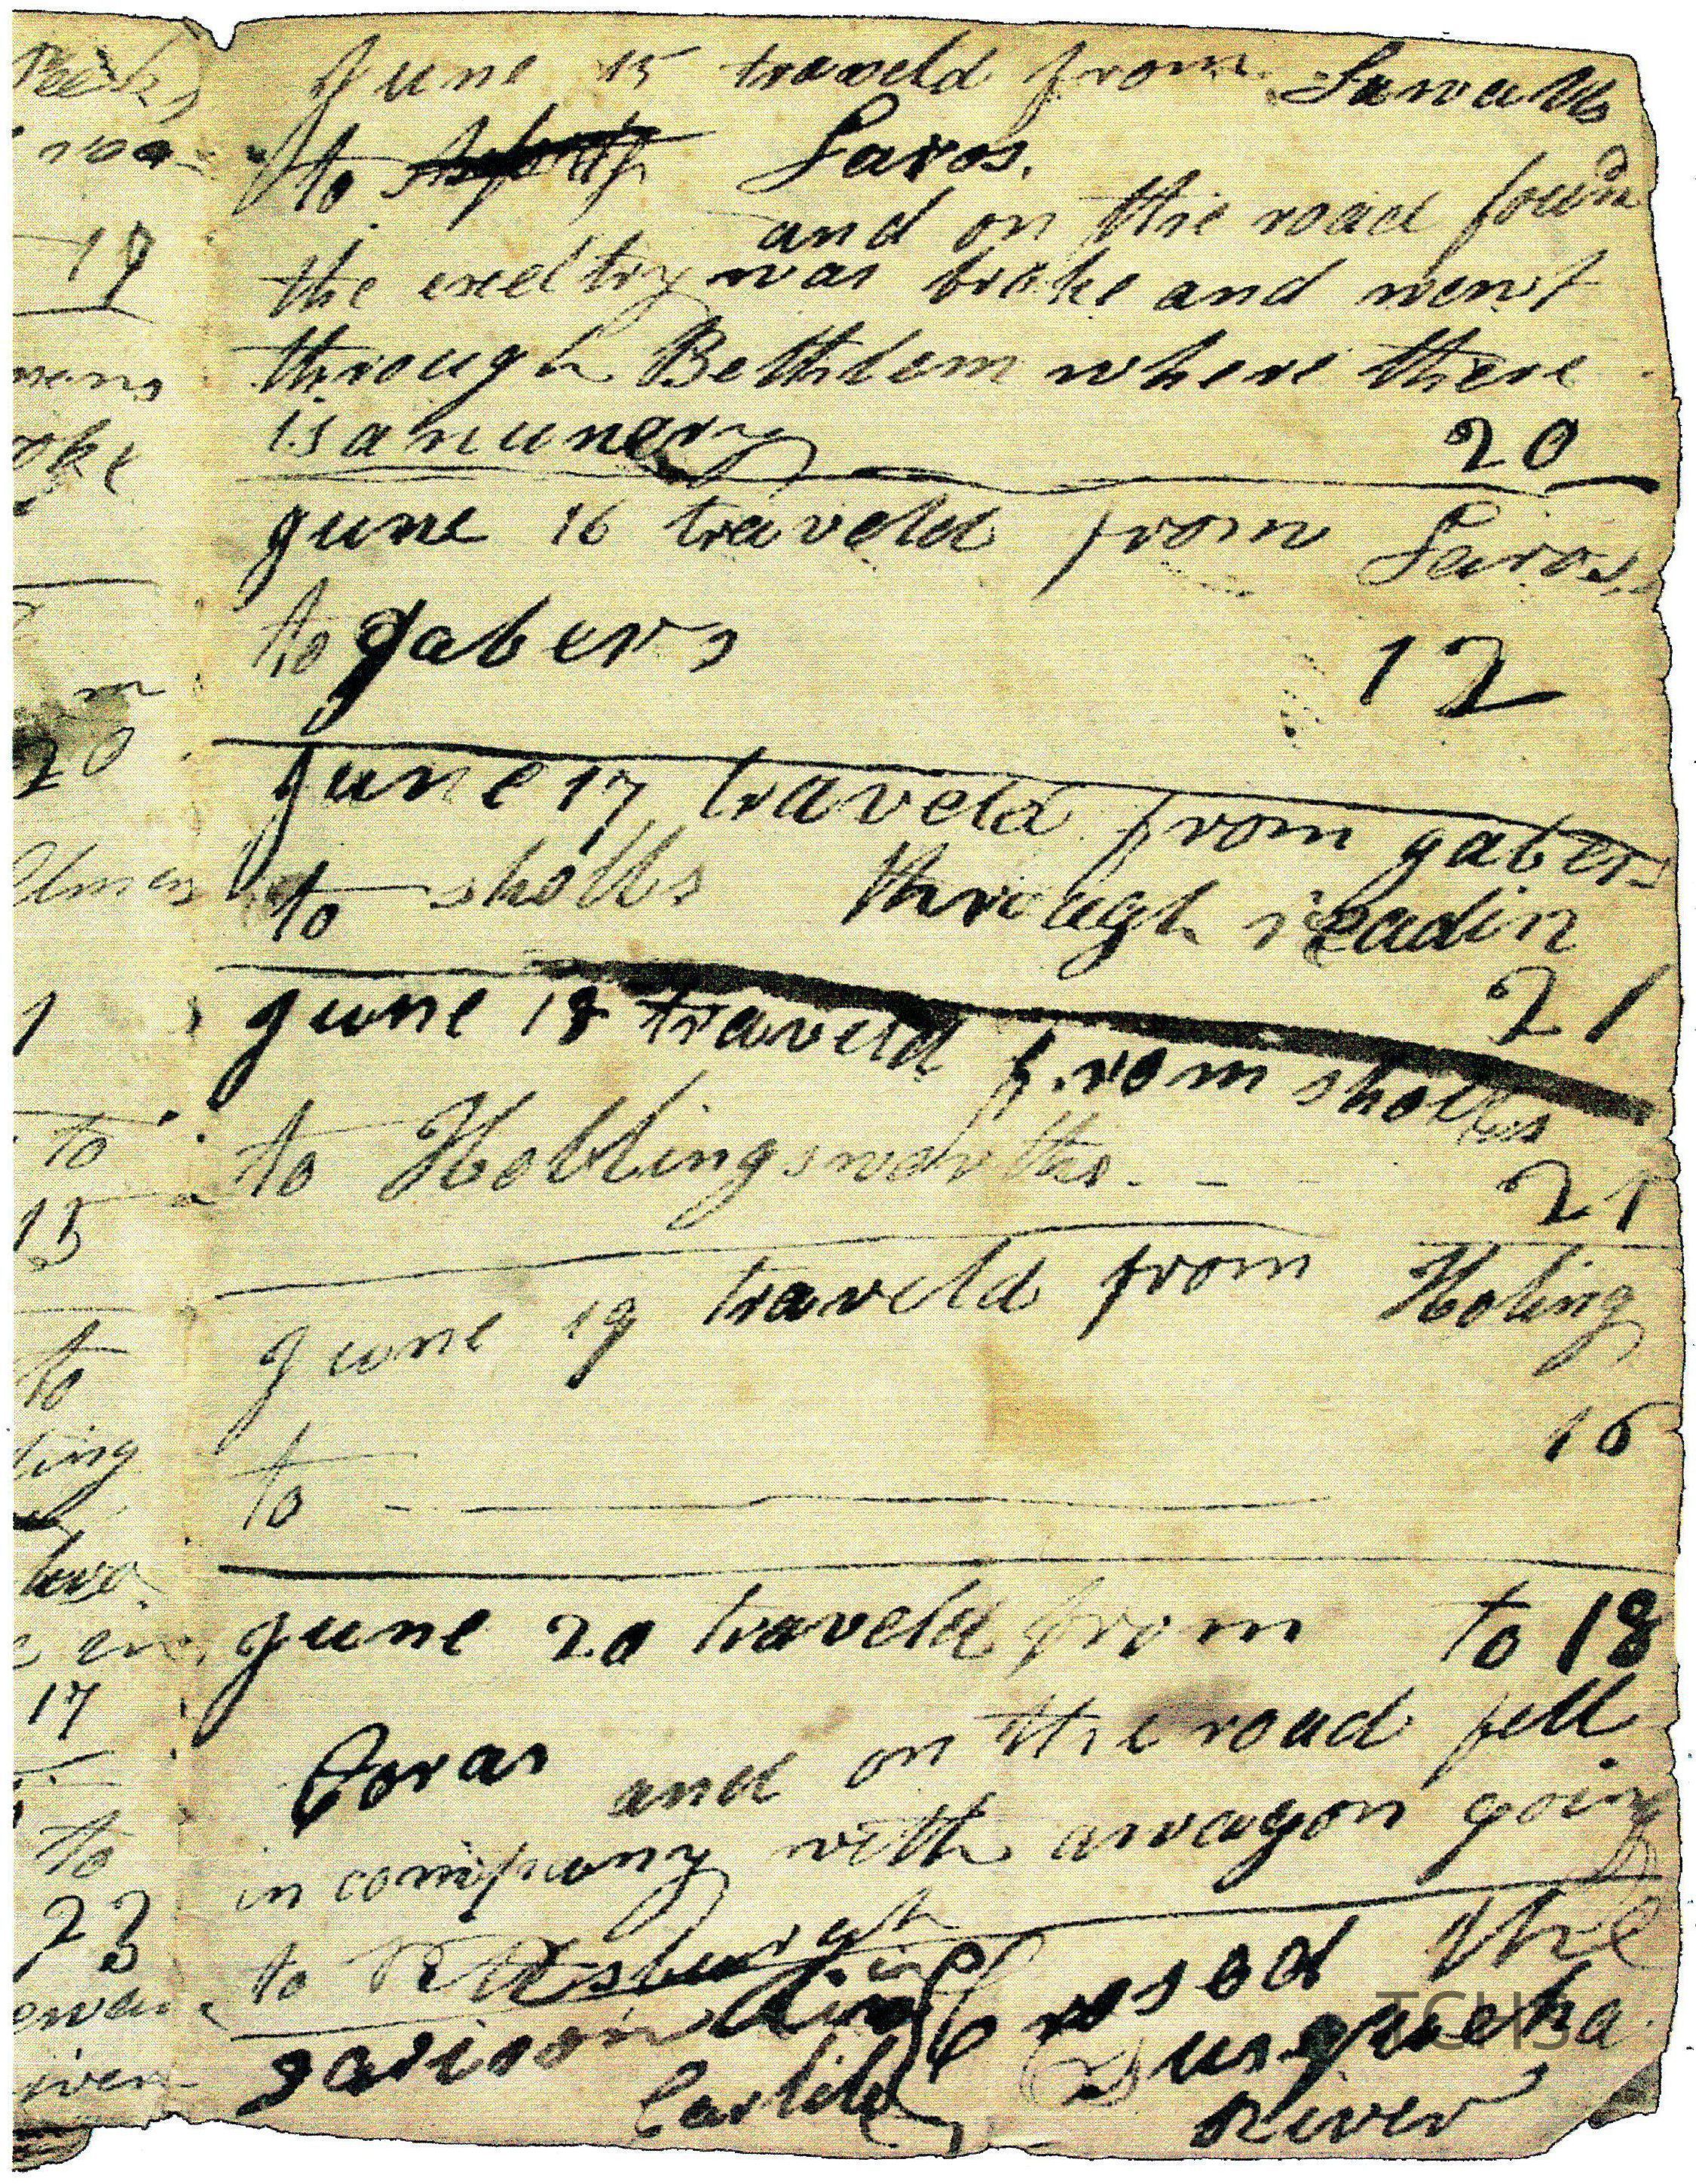 June 15 traveld from
to Saros.
and on the road found
the exeltry was broke and went
through Bethlem where there
is a nunery 20
June 16 traveld from Saros
to gabers
12
June 17 traveld from gabers
to sholls through readin
21
June 18 traveld from sholls
to Hollingsworths
21
June 19 traveld from Holing
16
to
June 20 traveld from to 18
and on the road fell
in company with a wagon going
to Pittsburgh
Crosed the
Susqueha
Carlile
River
17
oke
20
1
to
15
to
ting
17
to
23
TCHS